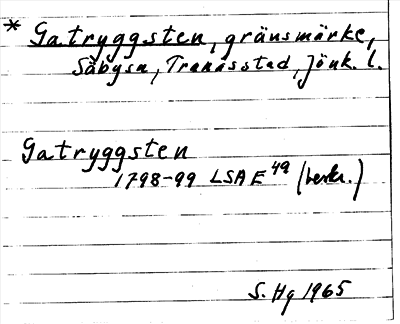 * Gatryggsten, gränsmärke,
Säbysn, Tranåsstad, Jönk. l.
Gatryggsten
1798-99 LSA E 49 (beskr.)
S. Hg 1965